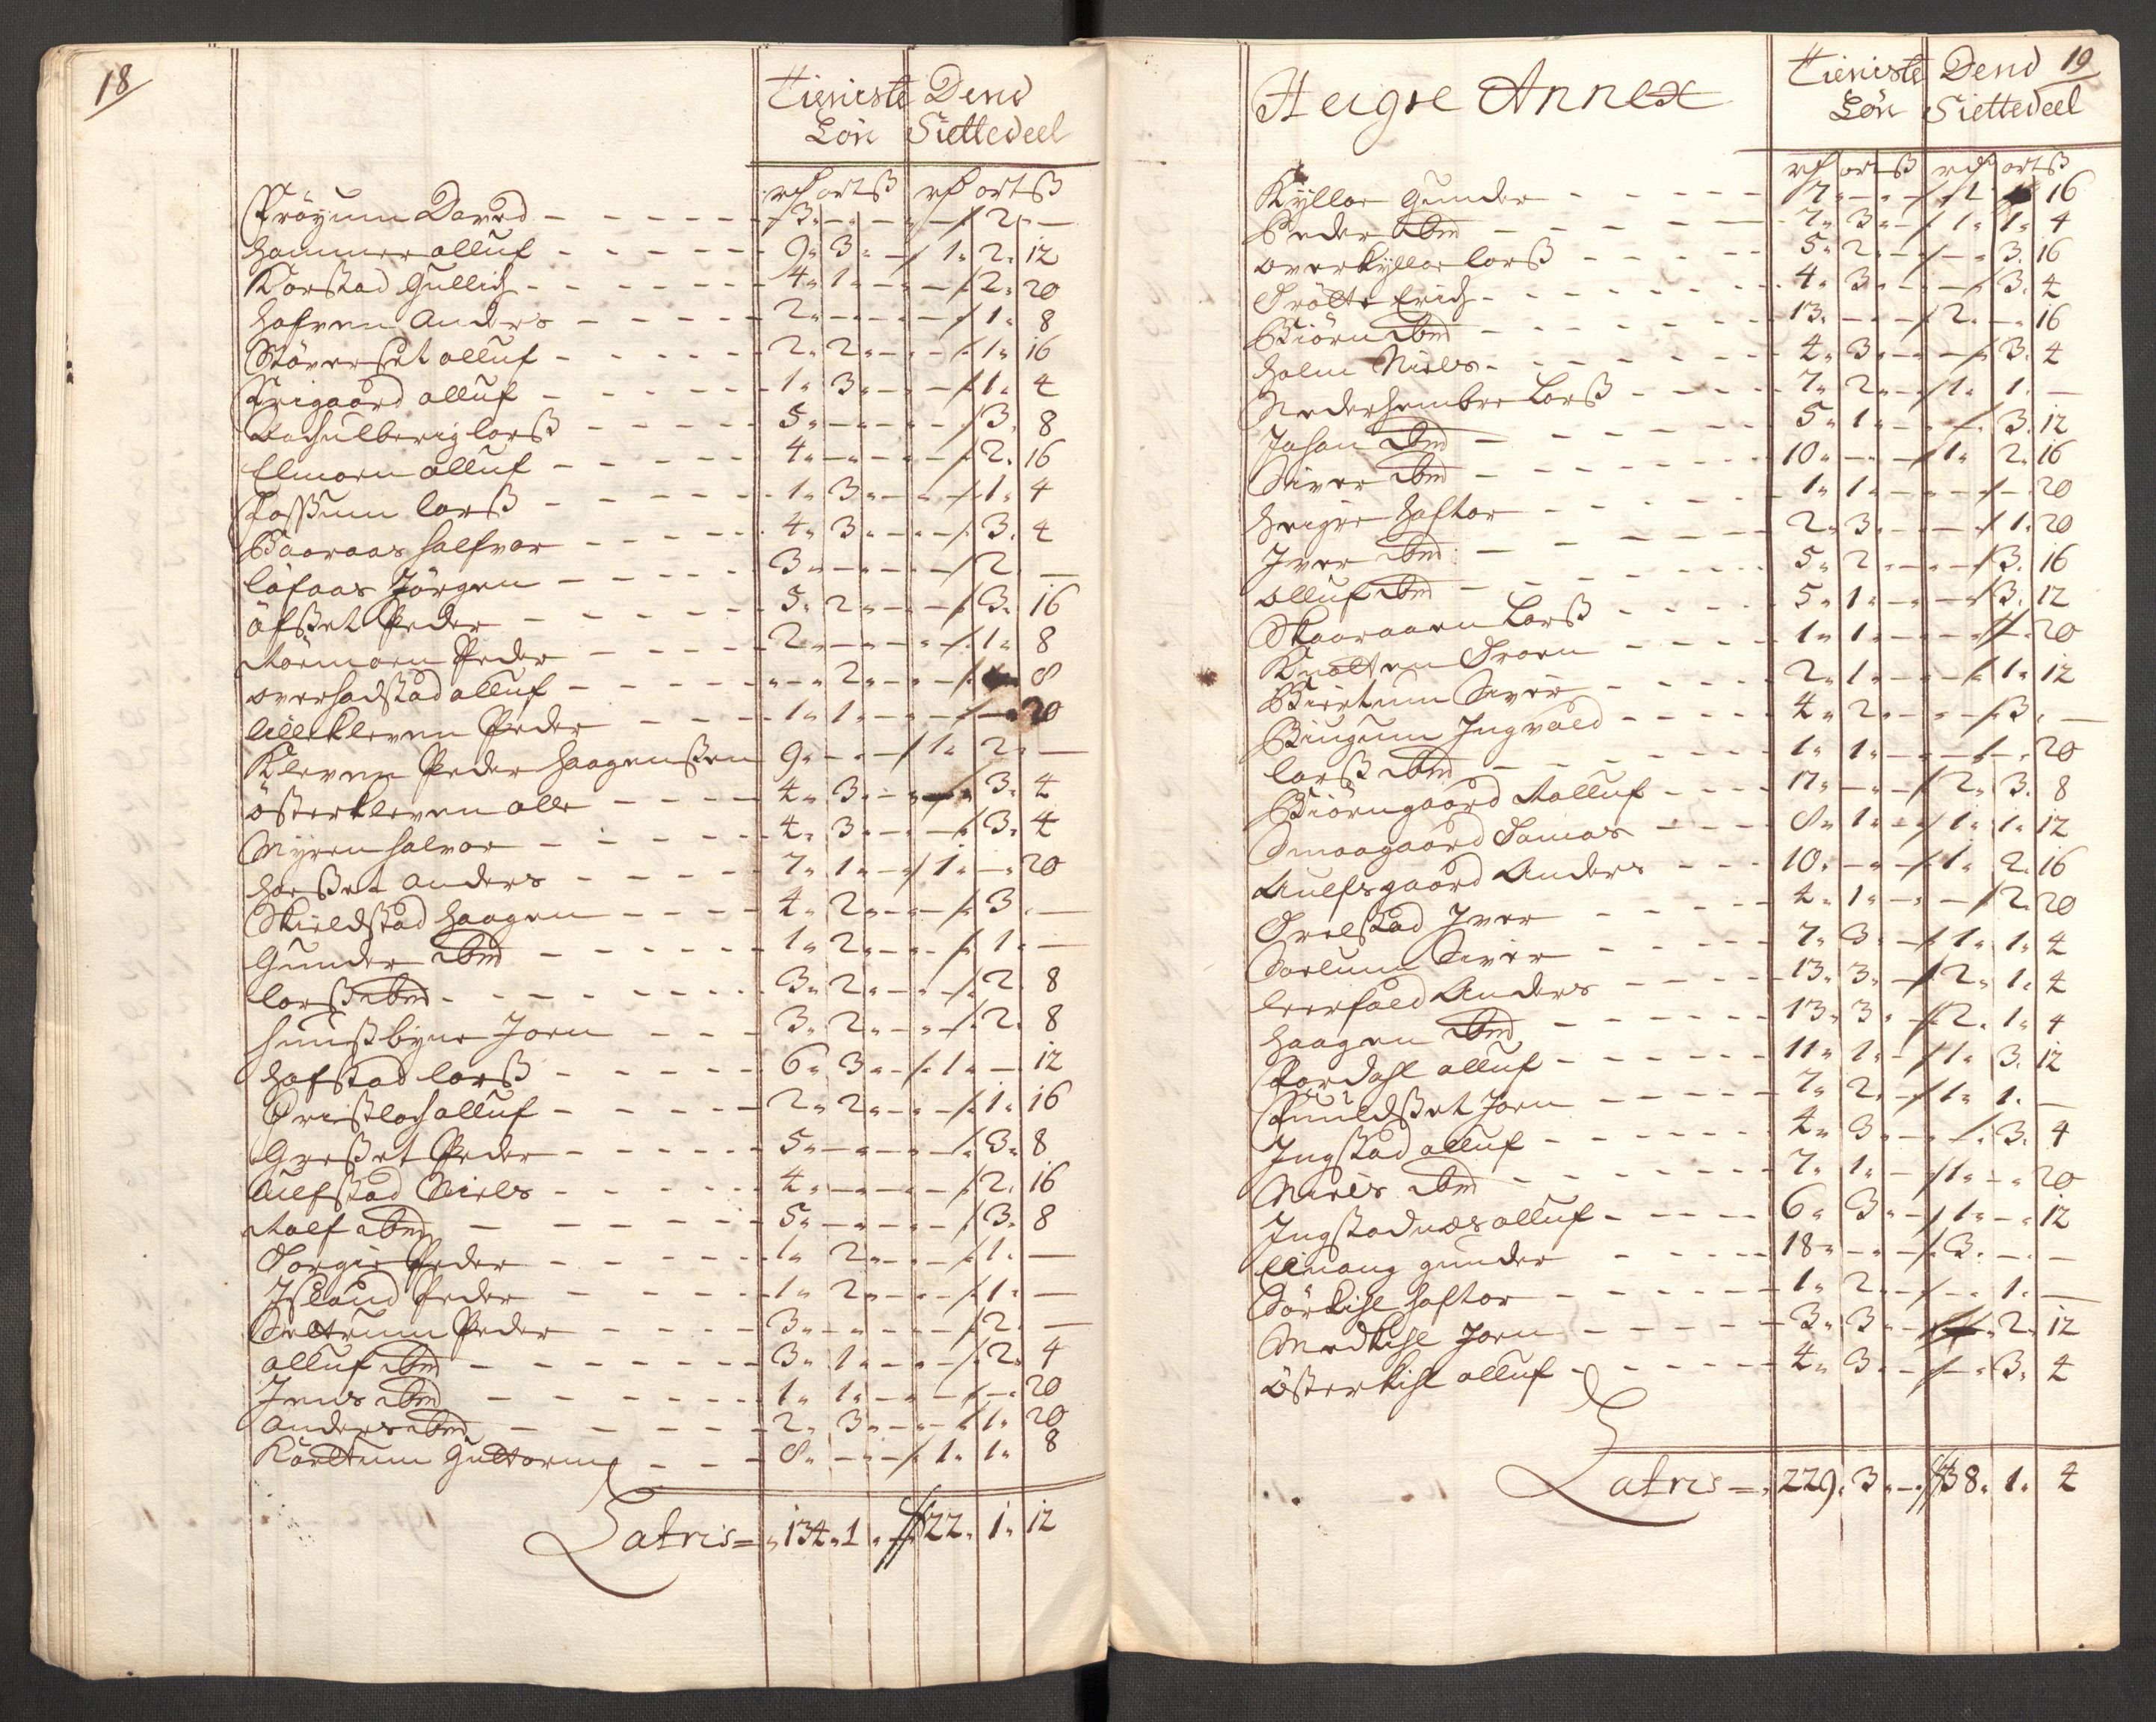 18
Tieniste Dend
Lön Siettedeel
rd ort ß rd ort ß
Fröyum David - - - - - 3 " - " - - 2 " -
Hammer olluf - - - - - 9 " 3 " - 1 " 2 " 12
Korstad Gullich - - - - - 4 " 1 " - - 2 " 20
Hofven Anders - - - - - 2 " - " - - 1 " 8
Störerset olluf - - - - - 2 " 2 " - - 1 " 16
Friigaard olluf - - - - - 1 " 3 " - - 1 " 4
lars - - - - - 5 " - " - - 3 " 8
Elmoen olluf - - - - - 4 " - " - - 2 " 16
Fossum larß - - - - - 1 " 3 " - - 1 " 4
Baaraas halfvor - - - - - 4 " 3 " - - 3 " 4
löfaas Jörgen - - - - - 3 " - " - - 2 " -
öfßet Peder - - - - - 5 " 2 " - - 3 " 16
Mörmoen Peder - - - - - 2 " - " - - 1 " 8
overhadstad olluf - - - - - " - 2 " - - 8
lillekleven Peder - - - - 1 " 1 " - - - " 20
Kleven Peder Haagenßen 9 " - " - 1 " 2 " -
österkleven olle - - - - 4 " 3 " - - 3 " 4
Myren halvor - - - - 4 " 3 " - - 3 " 4
Horßet anders - - - - - 7 " 1 " - 1 " - " 20
Skieldstad haagen - - - - 4 " 2 " - - 3 " -
Gunder ibm - - - - - 1 " 2 " - - 1 " -
larß ibm - - - - - 3 " 2 " - - 2 " 8
huusbyne Joen - - - 3 " 2 " - - 2 " 8
Hofstad larß - - - - - 6 " 3 " - 1 " - 12
olluf - - - - - 2 " 2 " - - 1 " 16
Græßet Peder - - - - - 5 " - " - - 3 " 8
Aulfstad Niels - - - - - 4 " - " - - 2 " 16
Rolf ibm - - - - - 5 " - " - - 3 " 8
Borgin Peder - - - - - 1 " 2 " - - 1 " -
Jßland Peder - - - - - 1 " 2 " - - 1 " -
Peder - - - - - 3 " - " - - 2 " -
olluf ibm - - - - - 3 " 1 " - - 2 " 4
Jens ibm - - - - - 1 " 1 " - - - " 20
anders ibm - - - - - 2 " 3 " - - 1 " 20
Guttorm - - - 8 " - " - 1 " 1 " 8
Latris = " 134 " 1 " - 22 " 1 " 12
19
Heigre Annex
Tieniste Dend
Lön Siettedeel
rd ort ß rd ort ß
Kylloe Gunder - - - - - 7 " - " - 1 16
Peder ibm - - - - - 7 " 3 " - 1 " 1 " 4
overkylloe larß - - - - - 5 " 2 " - - " 3 " 16
Trötte Erich - - - - - 4 " 3 " - - 3 " 4
Biörn ibm - - - - - 13 " - " - 2 " - " 16
Holm Niels - - - - - 4 " 3 " - - 3 " 4
Nederhembre Larß - - - - 7 " 2 " - 1 " 1 " -
Johan ibm - - - - - 5 " 1 " - - 3 " 12
Siver ibm - - - - - 10 " - " - 1 " 2 " 16
Heigre Haftor - - - - - 1 " 1 " - - - " 20
Jver ibm - - - - - 2 " 3 " - - 1 " 20
olluf ibm - - - - - 5 " 2 " - - 3 " 16
Skaaraaen Larß - - - - 5 " 1 " - - 3 " 12
- - - - 1 " 1 " - - - " 20
Biertum Siver - - - - 2 " 1 " - - 1 " 12
Bingum Jngvald - - - - 4 " 2 " - - 3 " -
larß ibm - - - - - 1 " 1 " - - - " 20
Biörngaard Rolluf - - - - 17 " - " - 2 " 3 " 8
Smaagaard Tomas - - - - 8 " 1 " - 1 " 1 " 12
Aulfsgaard Anders - - - 10 " - " - 1 " 2 " 16
Jver - - - - 4 " 1 " - - 2 " 20
Siver - - - - 7 " 3 " - 1 " 1 " 4
leerfald Anders - - - - 13 " 3 " - 2 " 1 " 4
Haagen ibm - - - - - 13 " 3 " - 2 " 1 " 4
Fordahl olluf - - - - - 11 " 1 " - 1 " 3 " 12
Fuuldßet Joen - - - - - 7 " 2 " - 1 " 1 " -
Jngstad olluf - - - - - 4 " 3 " - - 3 " 4
Niels ibm - - - - - 7 " 1 " - 1 " - " 20
Jngstadnæs olluf - - - - 6 " 3 " - 1 " - " 12
Elnang gunder - - - - 18 " - " - 3 " - " -
Sörkihl Haftor - - - - - 1 " 2 " - - 1 " -
Medkihl Joen - - - - - 3 " 3 " - 2 " 12
österkihl olluf - - - - - 4 " 3 " - - " 3 " 4
Latris = " 229 " 3 " - 38 " 1 " 4